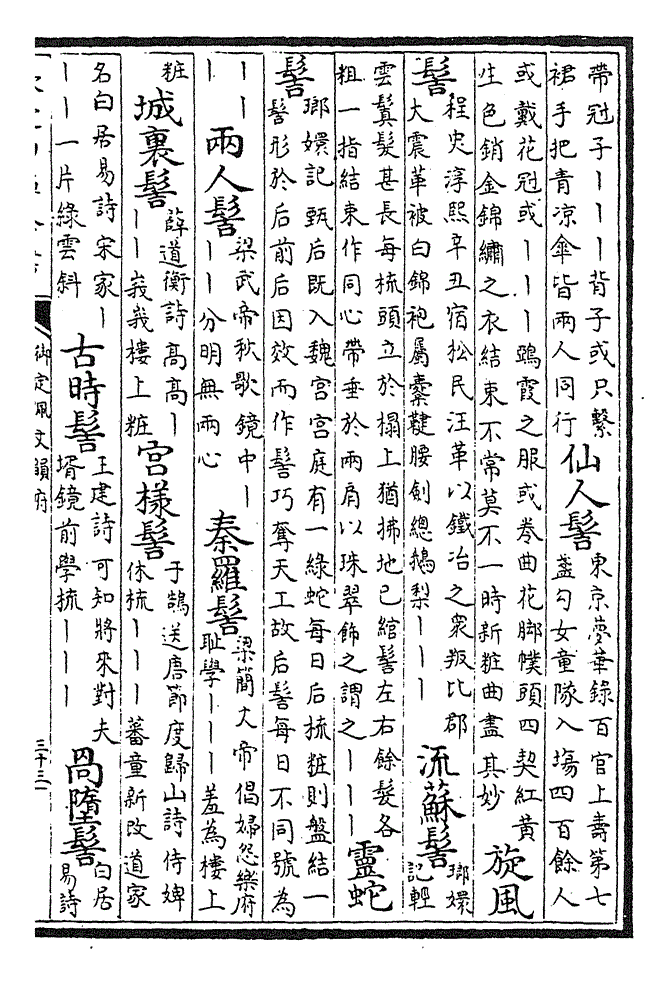 帶冠子丨丨丨背子或只繫
裙手把青凉傘皆兩人同行
仙人髻
東京夢華錄百官上壽第七
盞勾女童隊入塲四百餘人
或戴花冠或丨丨丨鵶霞之服或卷曲花脚幞頭四契紅黃
生色銷金錦繡之衣結束不常莫不一時新粧曲盡其妙
旋風
髻
程史淳熙辛丑宿松民汪革以鐵冶之衆叛比郡
大震革被白錦袍屬櫜鞬腰劍總鵝梨丨丨丨
流蘇髻
瑯嬛
記輕
雲鬒髮甚長每梳頭立於榻上猶拂地已綰髻左右餘髮各
粗一指結束作同心帶垂於兩肩以珠翠飾之謂之丨丨丨
靈蛇
髻
瑯嬛記甄后既入魏宮宮庭有一綠蛇每日后梳粧則盤結一
髻形於后前后因效而作髻巧奪天工故后髻每日不同號為
丨丨
丨丨
兩人髻
梁武帝秋歌鏡中丨
丨丨分明無兩心
秦羅髻
梁簡文帝倡婦怨樂府
耻學丨丨丨羞為樓上
粧
城裏髻
薛道衡詩高高丨
丨丨峩峩樓上粧
宮樣髻
于鵠送唐節度歸山詩侍婢
休梳丨丨丨蕃童新改道家
名白居易詩宋家丨
丨丨一片綠雲斜
古時髻
王建詩可知將來對夫
壻鏡前學梳丨丨丨
咼墮髻
白居
易詩
御定佩文韻府
三十三